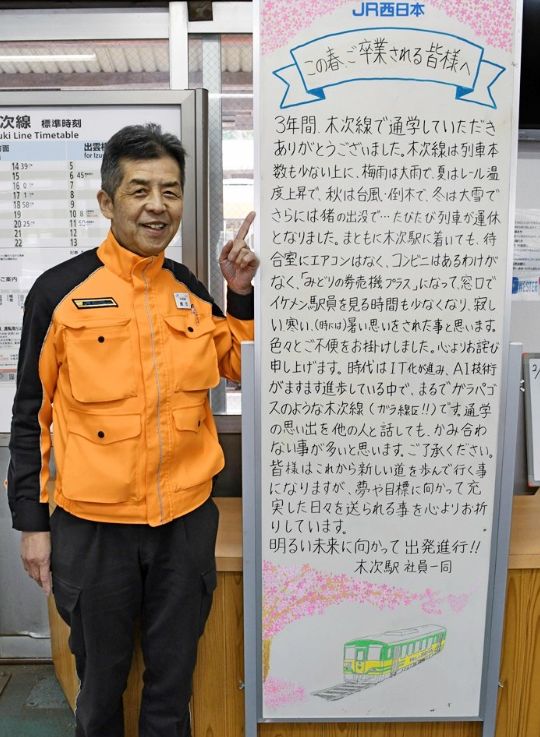 JR西日本
この春、ご卒業される皆様へ
3年間、木次線で通学していただき
ありがとうございました。木次線は列車本
数も少ない上に、梅雨は大雨で、夏はレール温
度上昇で、秋は台風・倒木で、冬は大雪で
さらには猪の出没で…たびたび列車が運休
となりました。まともに木次駅に着いても、待
合室にエアコンはなく、コンビニはあるわけが
なく、「みどりの券売機プラス」になって、窓口で
イケメン駅員を見る時間も少なくなり、寂し
い寒い、(時には)暑い思いをされた事と思います。
色々とご不便をお掛けしました。心よりお詫び
申し上げます。時代はIT化が進み、AI技術
がますます進歩している中で、まるでガラパゴ
スのような木次線(ガラ線区!!)です。通学
の思い出を他の人と話しても、かみ合わ
ない事が多いと思います。ご了承ください。
皆様はこれから新しい道を歩んで行く事
になりますが、夢や目標に向かって充
実した日々を送られる事を心よりお祈
りしています。
明るい未来に向かって出発進行!!
木次駅 社員一同
次線 標準時刻
uki Line Timetable
方面
出雲横
for Izu
14 39
15
16 0
17 1
18 58
19
20 25
21
22
5
6 45
7
8
9
10
11
ご案内